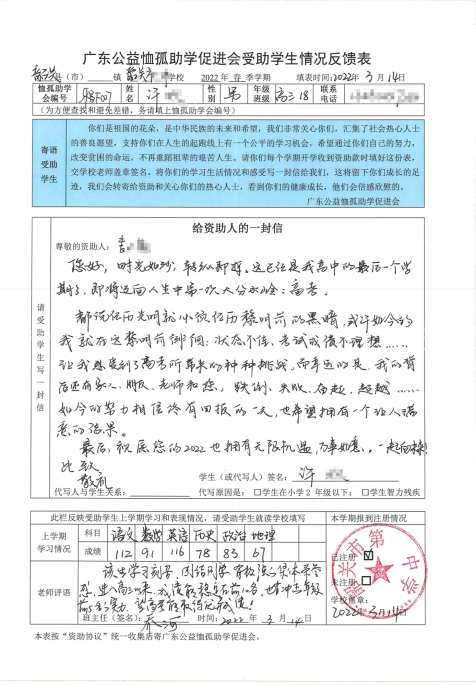 广东公益恤孤助学促进会受助学生情况反馈表
县(市) 镇 学校 2022年春季学期 填表时间:2022年3月14日
恤孤助学会编号 姓名 许 性别 男 年级班级 高三18 联系电话
(为方便查找和避免差错,务请填上恤孤助学会编号)
寄语受助学生
你们是祖国的花朵,是中华民族的未来和希望,我们非常关心你们,汇集了社会热心人士
的善良愿望,支持你们在人生的起跑线上有一个公平的学习机会,希望通过你们自己的努力,
改变贫困的命运,不再重蹈祖辈的艰苦人生。请你们每个学期开学收到资助款时填好这份表,
交学校老师盖章签名,将你们的学习生活情况和感受写一封信给我们,这将留下你们成长的足
迹,我们会转寄给资助和关心你们的热心人士,看到你们的健康成长,他们会倍感欣慰的。
广东公益恤孤助学促进会
请受助学生写一封信
给资助人的一封信
尊敬的资助人:
您好,时光如沙,转纵即逝。这已经是我高中的最后一个学
期了,即将迈向人生中第一次大分水岭:高考。
都说经历光明就必须经历黎明前的黑暗,或许如今的
我就在这黎明前徘徊:状态不佳、考试成绩不理想……
让我感受到了高考所带来的种种挑战。而幸运的是,我的背
后还有家人、朋友、老师和您。跌倒、失败、奋起、超越……
如今的努力相信终有回报的一天,也希望拥有一个让人满
意的结果。
最后,祝愿您的2022也拥有无限机遇,万事如意,一起向未来!
此致
敬礼
学生(或代写人)签名:许
代写人与学生关系: 代写原因是:□学生在小学2年级以下;□学生智力残疾
此栏反映受助学生上学期学习和表现情况,请受助学生就读学校填写
本学期报到注册情况
上学期学习情况
科目 语文 数学 英语 历史 政治 地理
成绩 112 91 116 78 83 67
已注册
未注册
学校盖章:
2022年3月14日
老师评语
该生学习刻苦,团结同学,
班主任(签名): 时间:2022年3月14日
本表按“资助协议”统一收集后寄广东公益恤孤助学促进会。